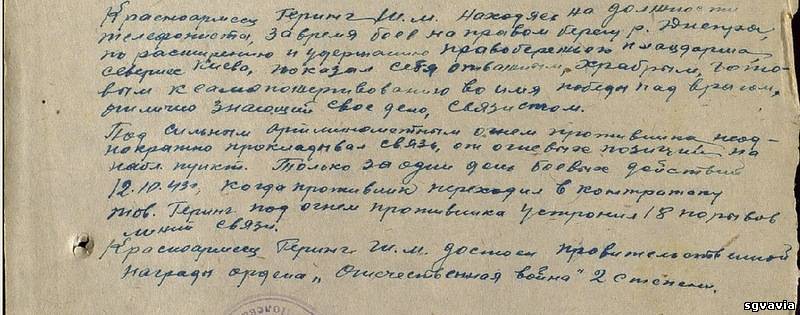 Красноармеец Геринг Ш.М. находясь на должности
телефониста, за время боев на правом берегу р. Днепра,
по расширению и удержанию правобережного плацдарма
севернее Киева, показал себя отважным, храбрым, гото-
вым к самопожертвованию во имя победы над врагом,
отлично знающий свое дело, связистом.
Под сильным артминометным огнем противника неод-
нократно прокладывал связь, от огневых позиций на
набл. пункт. Только за один день боевых действий
12.10.43г, когда противник переходил в контратаку
тов. Геринг под огнем противника устранил 18 порывов
линий связи.
Красноармеец Геринг Ш.М. достоин правительственной
награды ордена „Отечественная война" 2 степени.
sgvavia